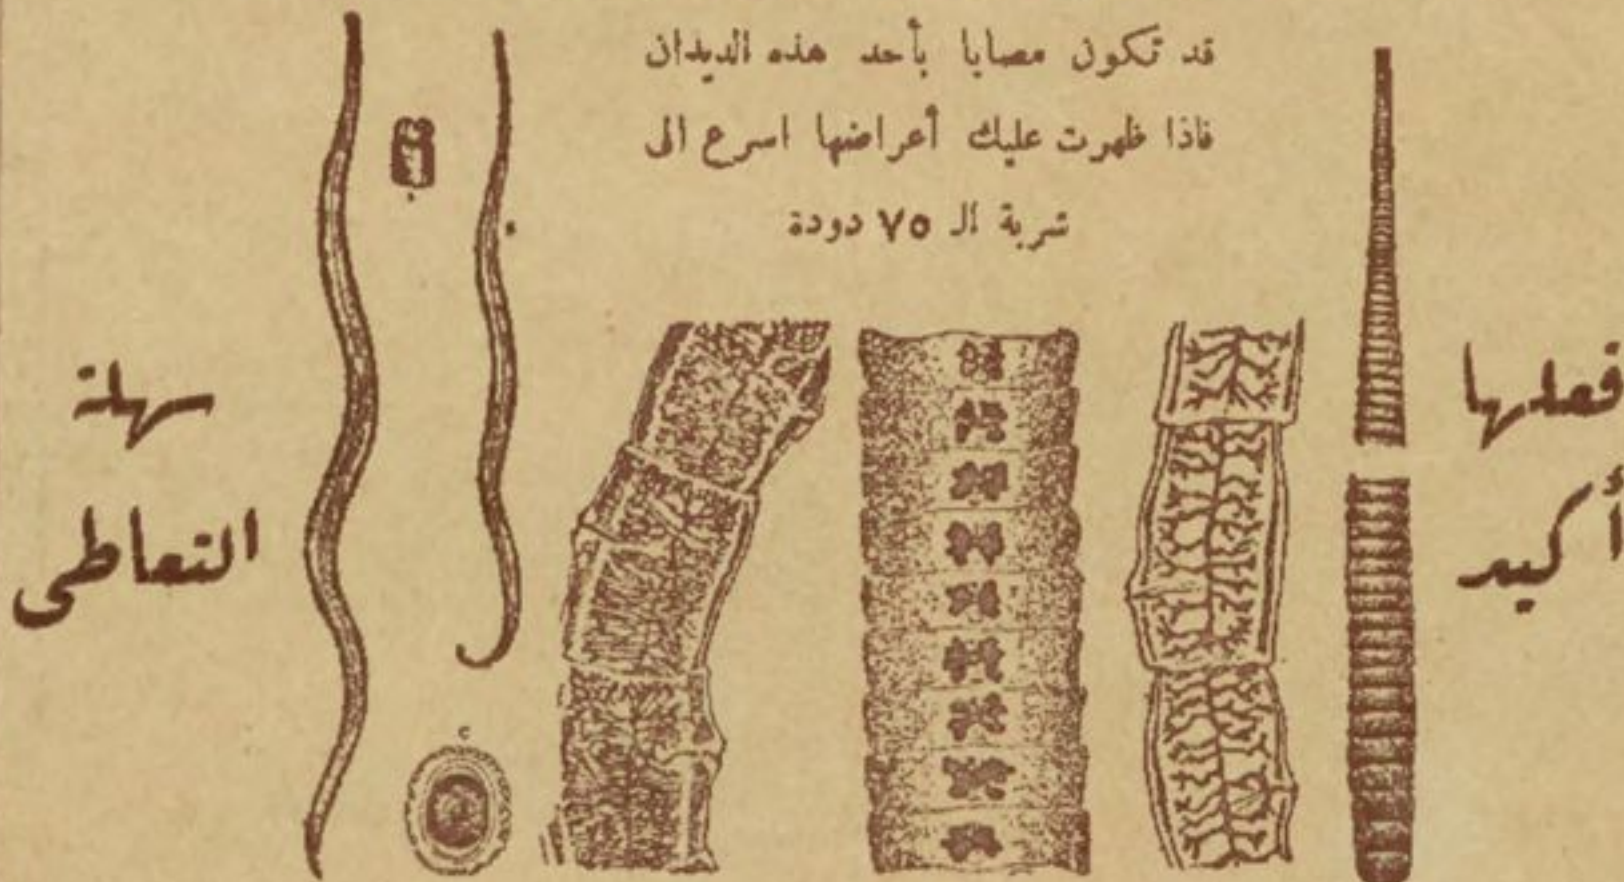 قد تكون مصابا بأحد هذه الديدان
فاذا ظهرت عليك أعراضها اسرع الى
شربة الـ ٧٥ دودة
فعلها
أكيد
سهلة
التعاطى
c